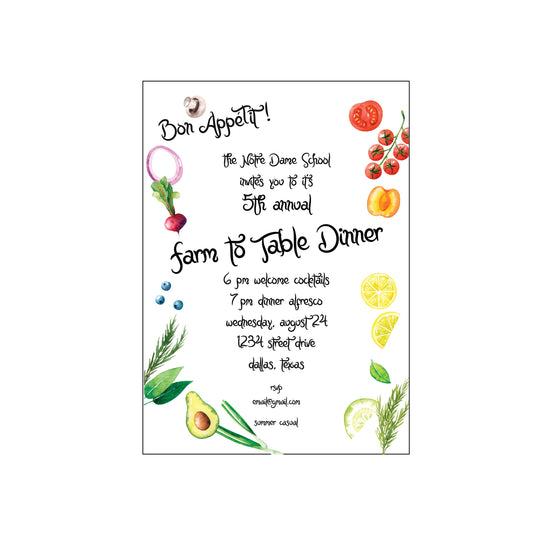 Bon Appétit!
the Notre Dame School
invites you to it's
5th annual
farm to Table Dinner
6 pm welcome cocktails
7 pm dinner alfresco
wednesday, august 24
1234 street drive
dallas, texas
rsvp
email@gmail.com
summer casual